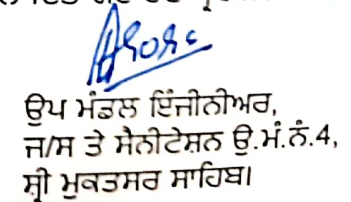 ਉਪ ਮੰਡਲ ਇੰਜੀਨੀਅਰ,
ਜ/ਸ ਤੇ ਸੈਨੀਟੇਸ਼ਨ ਉ.ਮੰ.ਨੰ.4,
ਸ਼੍ਰੀ ਮੁਕਤਸਰ ਸਾਹਿਬ।